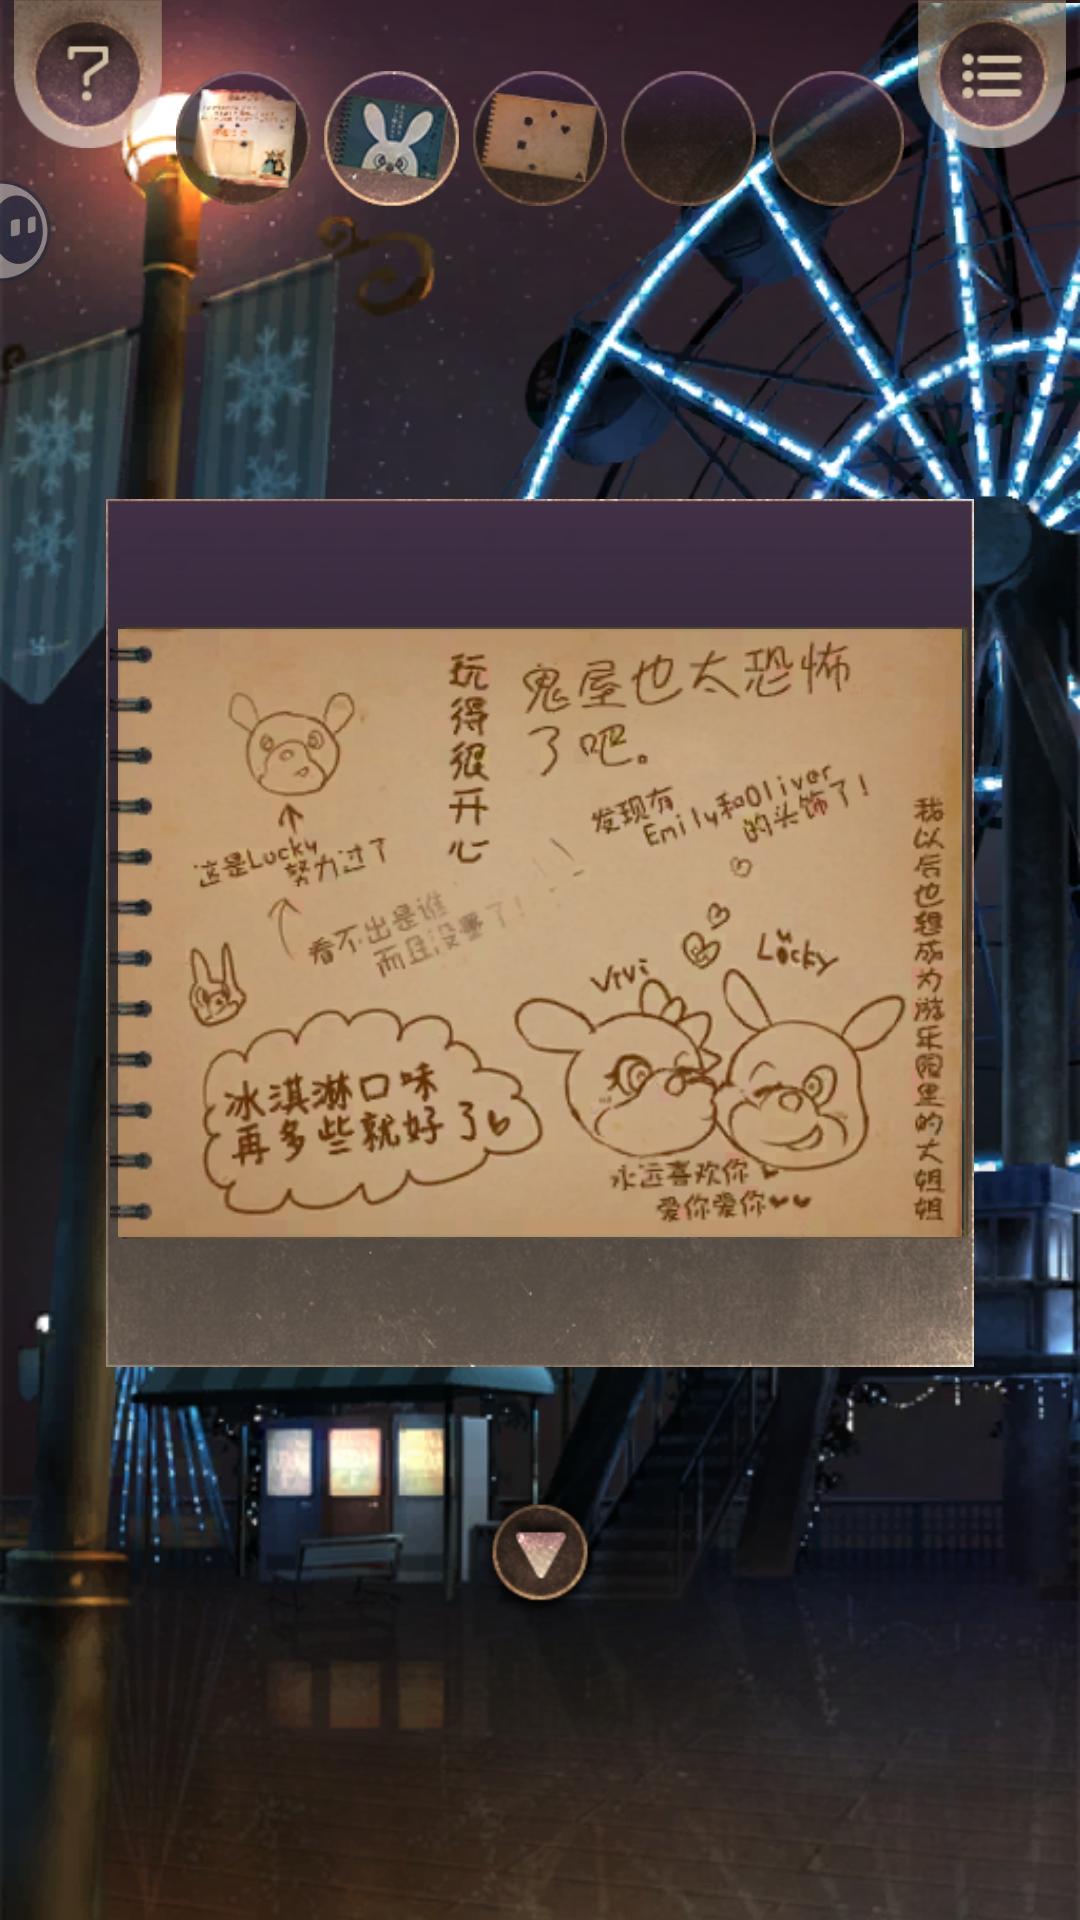 玩得很开心
鬼屋也太恐怖
了吧。
发现有
Emily和Oliver
的头饰了！
我以后也想成为游乐园里的大姐姐
这是Lucky
努力过了
看不出是谁
而且没画了！
ViVi
Lucky
冰淇淋口味
再多些就好了
永远喜欢你
爱你爱你